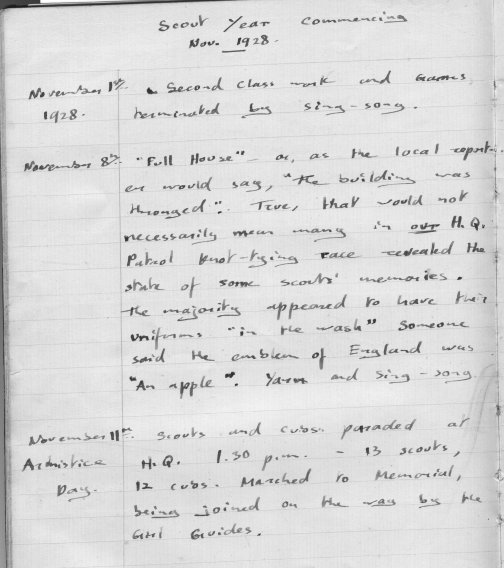 Scout Year Commencing
Nov. 1928.
November 1st. Second Class work and Games
1928. terminated by sing-song.
November 8th. "Full House" - or, as the local report-
er would say, "the building was
thronged". True, that would not
necessarily mean many in our H.Q.
Patrol knot-tying race revealed the
state of some scouts' memories.
The majority appeared to have their
uniforms "in the wash" Someone
said the emblem of England was
"An apple". Yarn and sing-song
November 11th. Scouts and cubs paraded at
Armistice H.Q. 1.30 p.m. - 13 scouts,
Day. 12 cubs. Marched to Memorial,
being joined on the way by the
Girl Guides.